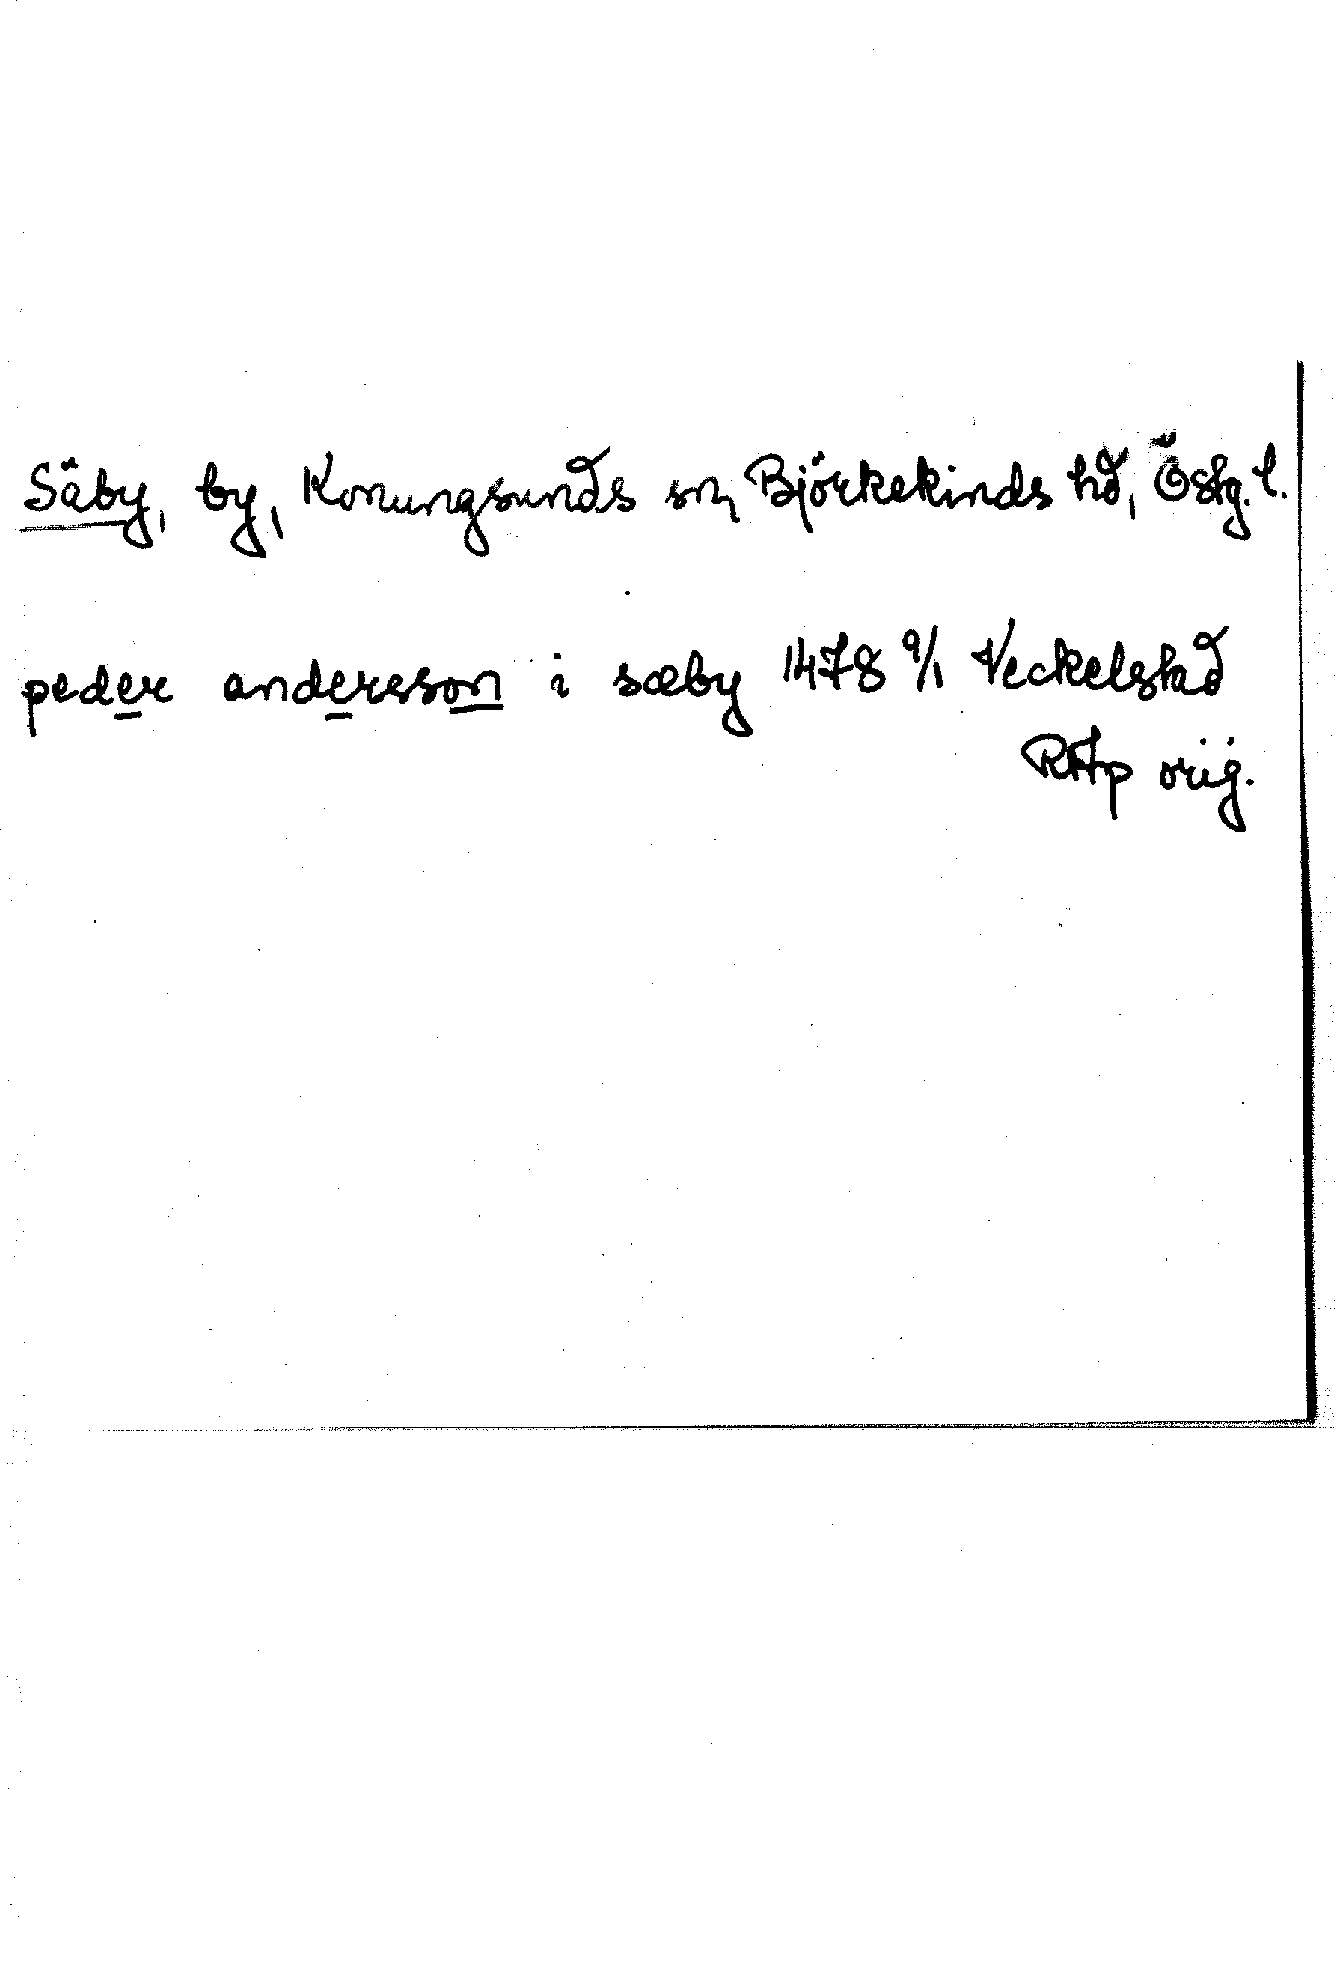 Säby, by, Konungsunds sn, Björkekinds hd, Östg. l.
peder andersson i sæby 1478 9/1 Veckelstad
RAp orig.